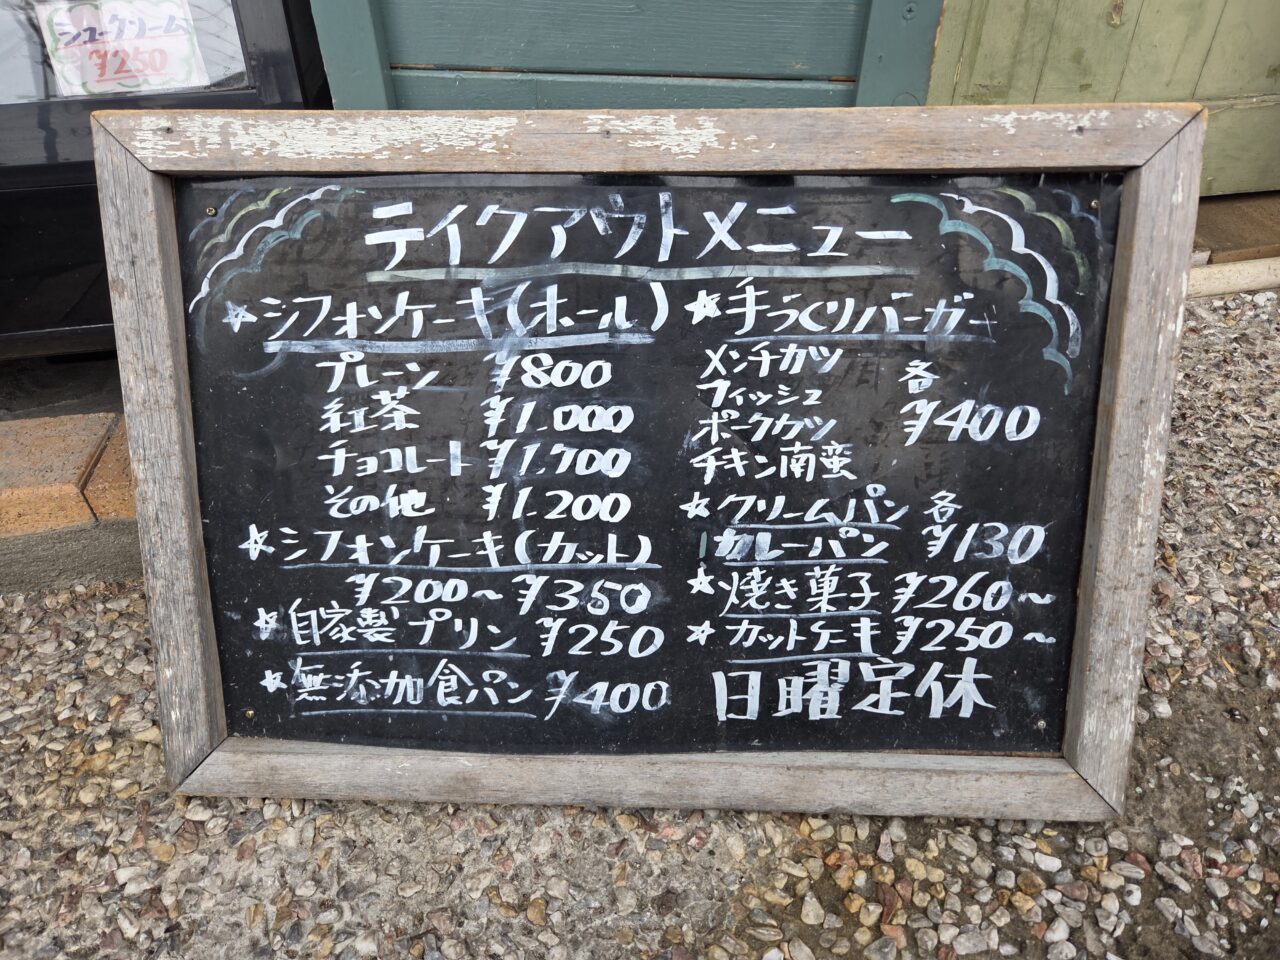 シュークリーム
¥250
テイクアウトメニュー
☆シフォンケーキ(ホール)
プレーン ¥800
紅茶 ¥1.000
チョコレート ¥1,700
その他 ¥1.200
☆シフォンケーキ(カット)
¥200～¥350
☆自家製プリン ¥250
☆無添加食パン ¥400
☆手づくりバーガー
メンチカツ
フィッシュ 各
ポークカツ ¥400
チキン南蛮
☆クリームパン 各
カレーパン ¥130
☆焼き菓子 ¥260～
☆カットケーキ ¥250～
日曜定休